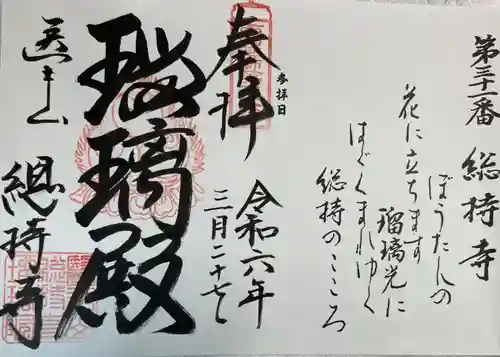 第三十一番 総持寺
ぼうたんの
花に立ちます
瑠璃光に
はぐくまれゆく
総持のこころ
奉拝
参拝日
令和六年
三月二十七
瑠璃殿
医王山
總持寺